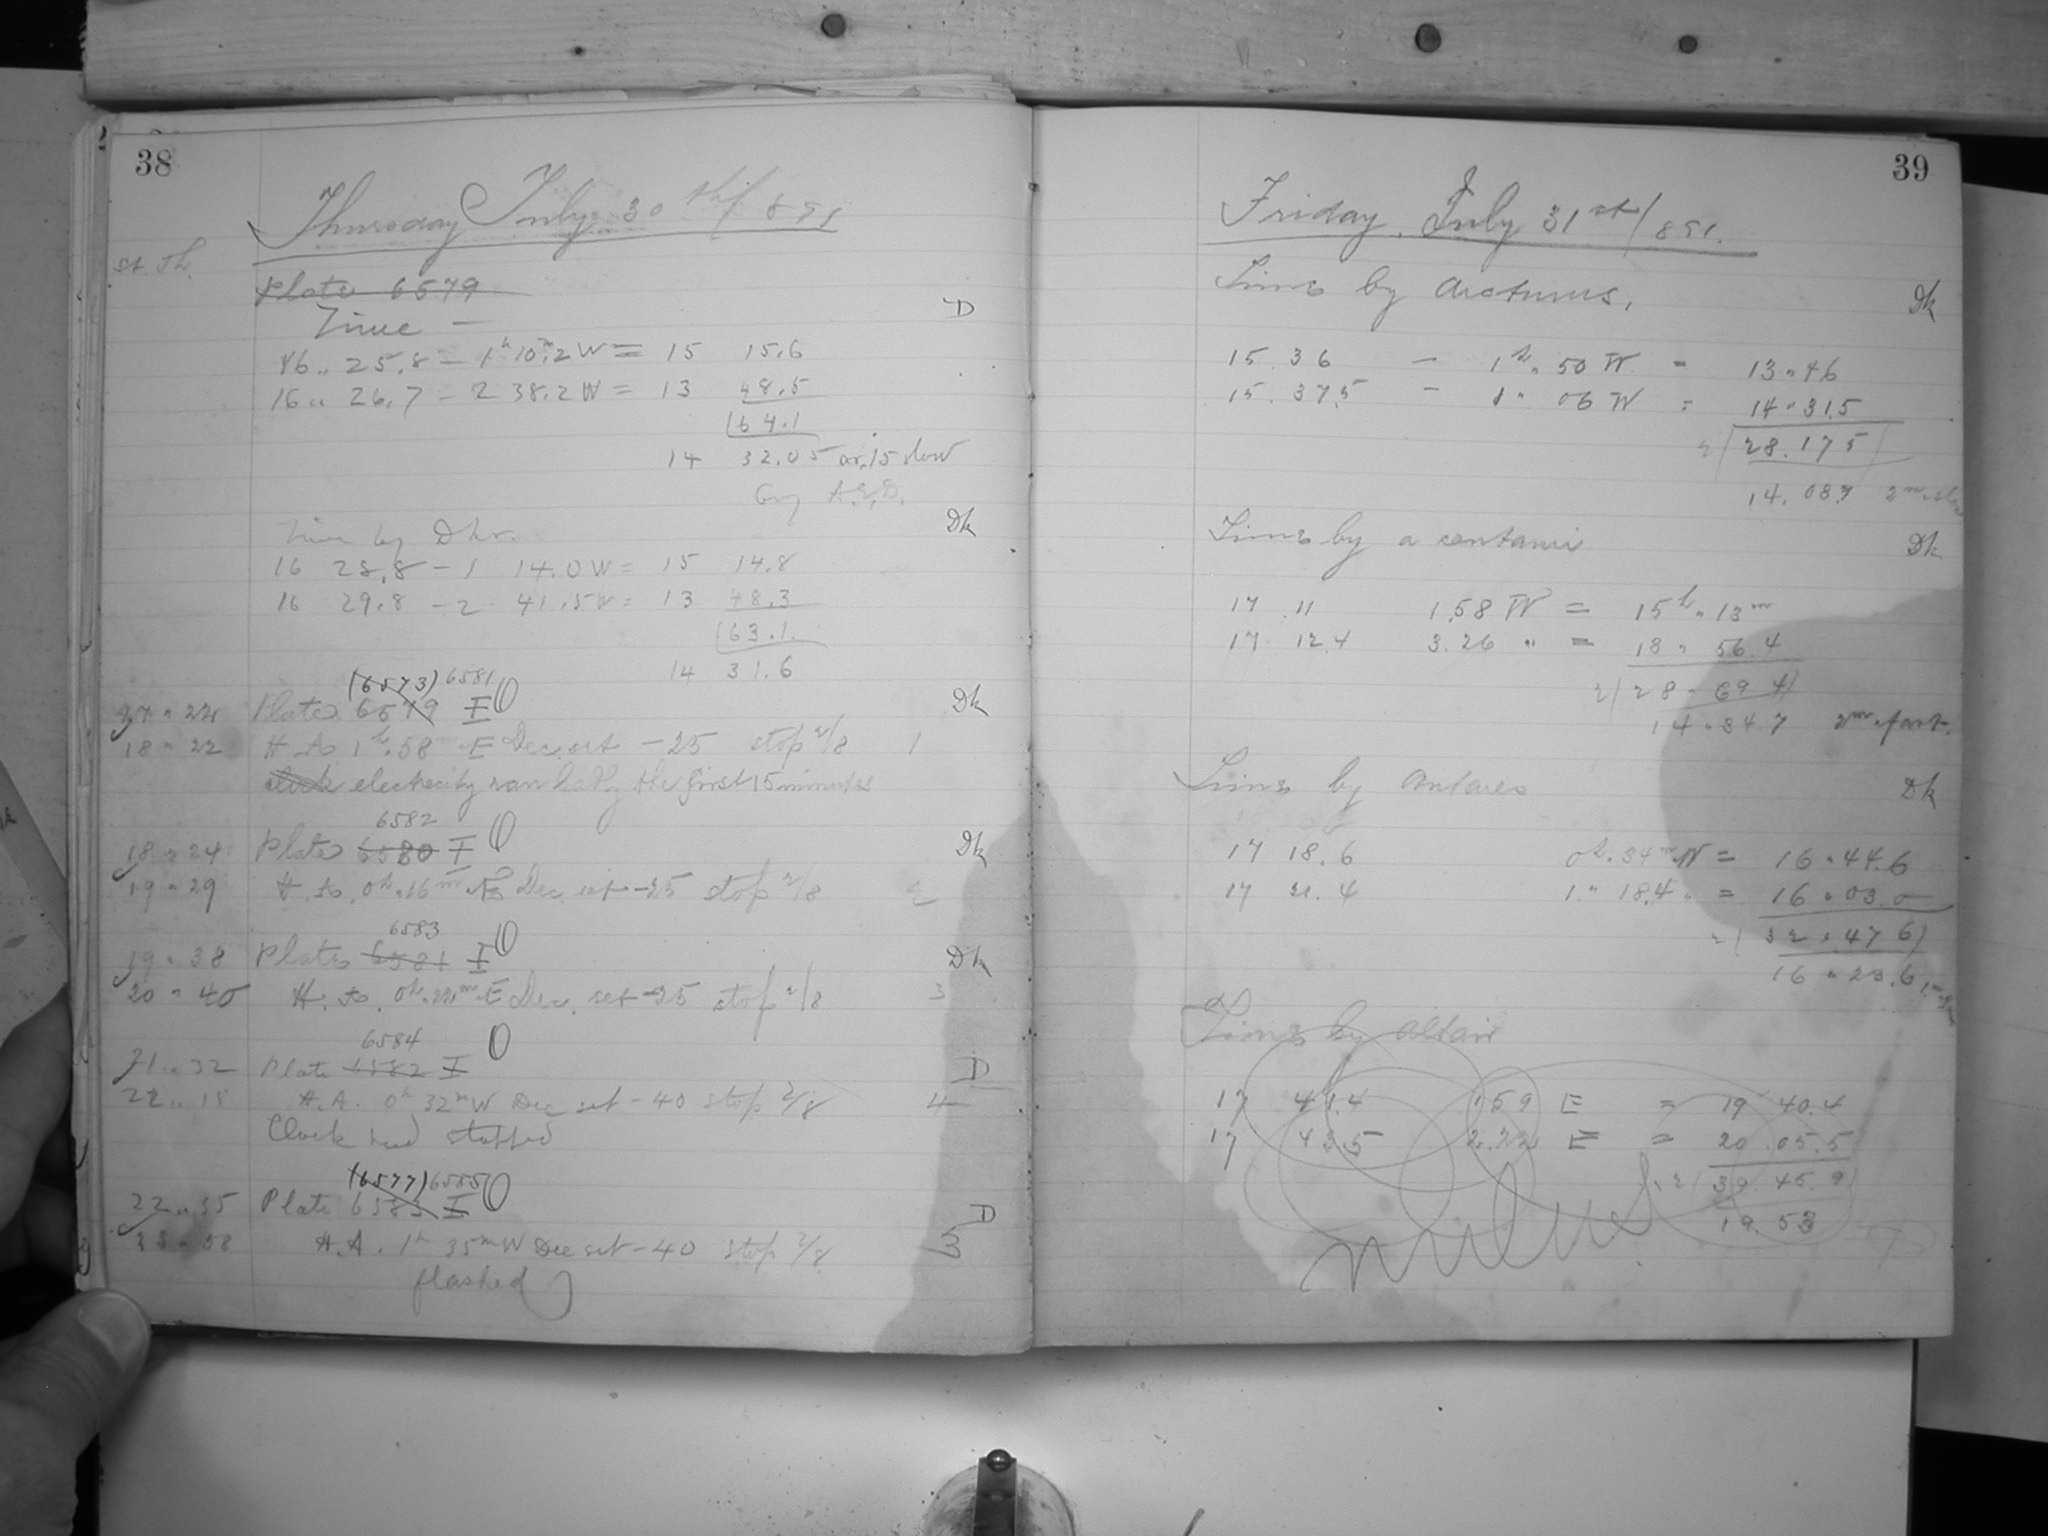 38
Thursday July 30th/891
St. Th.
Plate 6579
Time —
D
16 .. 25.8 — 1h 10m.2 W = 15 15.6
16 .. 26.7 — 2 38.2 W = 13 48.5
64.1
14 32.05 or .15 slow
by A.E.D.
Time by Dkr.
Dk
16 28.8 — 1 14.0 W = 15 14.8
16 29.8 — 2 41.5 W = 13 48.3
63.1
14 31.6
(6573) 6581
17 " 22 Plate 6579 I O Dk
18 " 22 H A 1h.58m E Dec. set — 25 stop 2/8 1
clock electricity ran badly the first 15 minutes
6582
18 " 24 Plate 6580 I O Dk
19 " 29 H. A. 0h.16m Dec. set — 25 stop 2/8 2
6583
19 " 38 Plate 6581 I O Dk
20 " 40 H. A. 0h.22m E Dec. set — 25 stop 2/8 3
6584
21 .. 32 Plate 6582 I O D
22 .. 15 H.A. 0h 32m W Dec set — 40 stop 2/8 4
Clock had stopped
(6577) 6585
22 .. 55 Plate 6583 I O D
23 " 58 H.A. 1h 35m W Dec set — 40 stop 2/8 5
flashed
39
Friday, July 31st/891.
Time by Arcturus,
Dk
15 . 36 — 1h " 50 W = 13 " 46
15 . 37.5 — 1 " 06 W = 14 " 31.5
2 | 28 . 17 5
14 . 08.7 2m
Time by a centauri
Dk
17 . 11 1.58 W = 15h " 13m
17 . 12.4 3.26 " = 13 " 56.4
2 | 28 - 69 4
14 " 34.7 2m. fast.
Time by Antares
Dk
17 18.6 0h. 34m W = 16 " 44.6
17 21.4 1 " 18.4 " = 16 " 03.0
2 | 32 " 47 6
16 " 23.6
Time by Altair
17 41.4 1 59 E = 19 40.4
17 43.5 2.22 E = 20 05.5
2 | 39 45.9
19.53